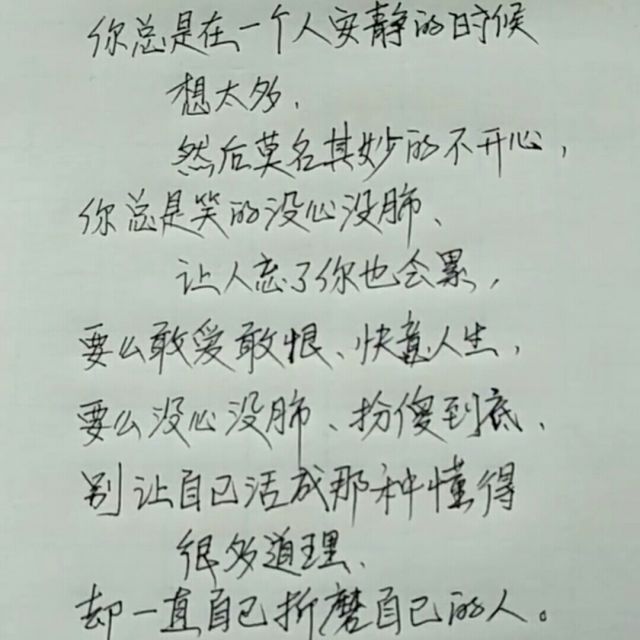 你总是在一个人安静的时候
想太多、
然后莫名其妙的不开心,
你总是笑的没心没肺、
让人忘了你也会累,
要么敢爱敢恨、快意人生,
要么没心没肺、扮傻到底、
别让自己活成那种懂得
很多道理、
却一直自己折磨自己的人。